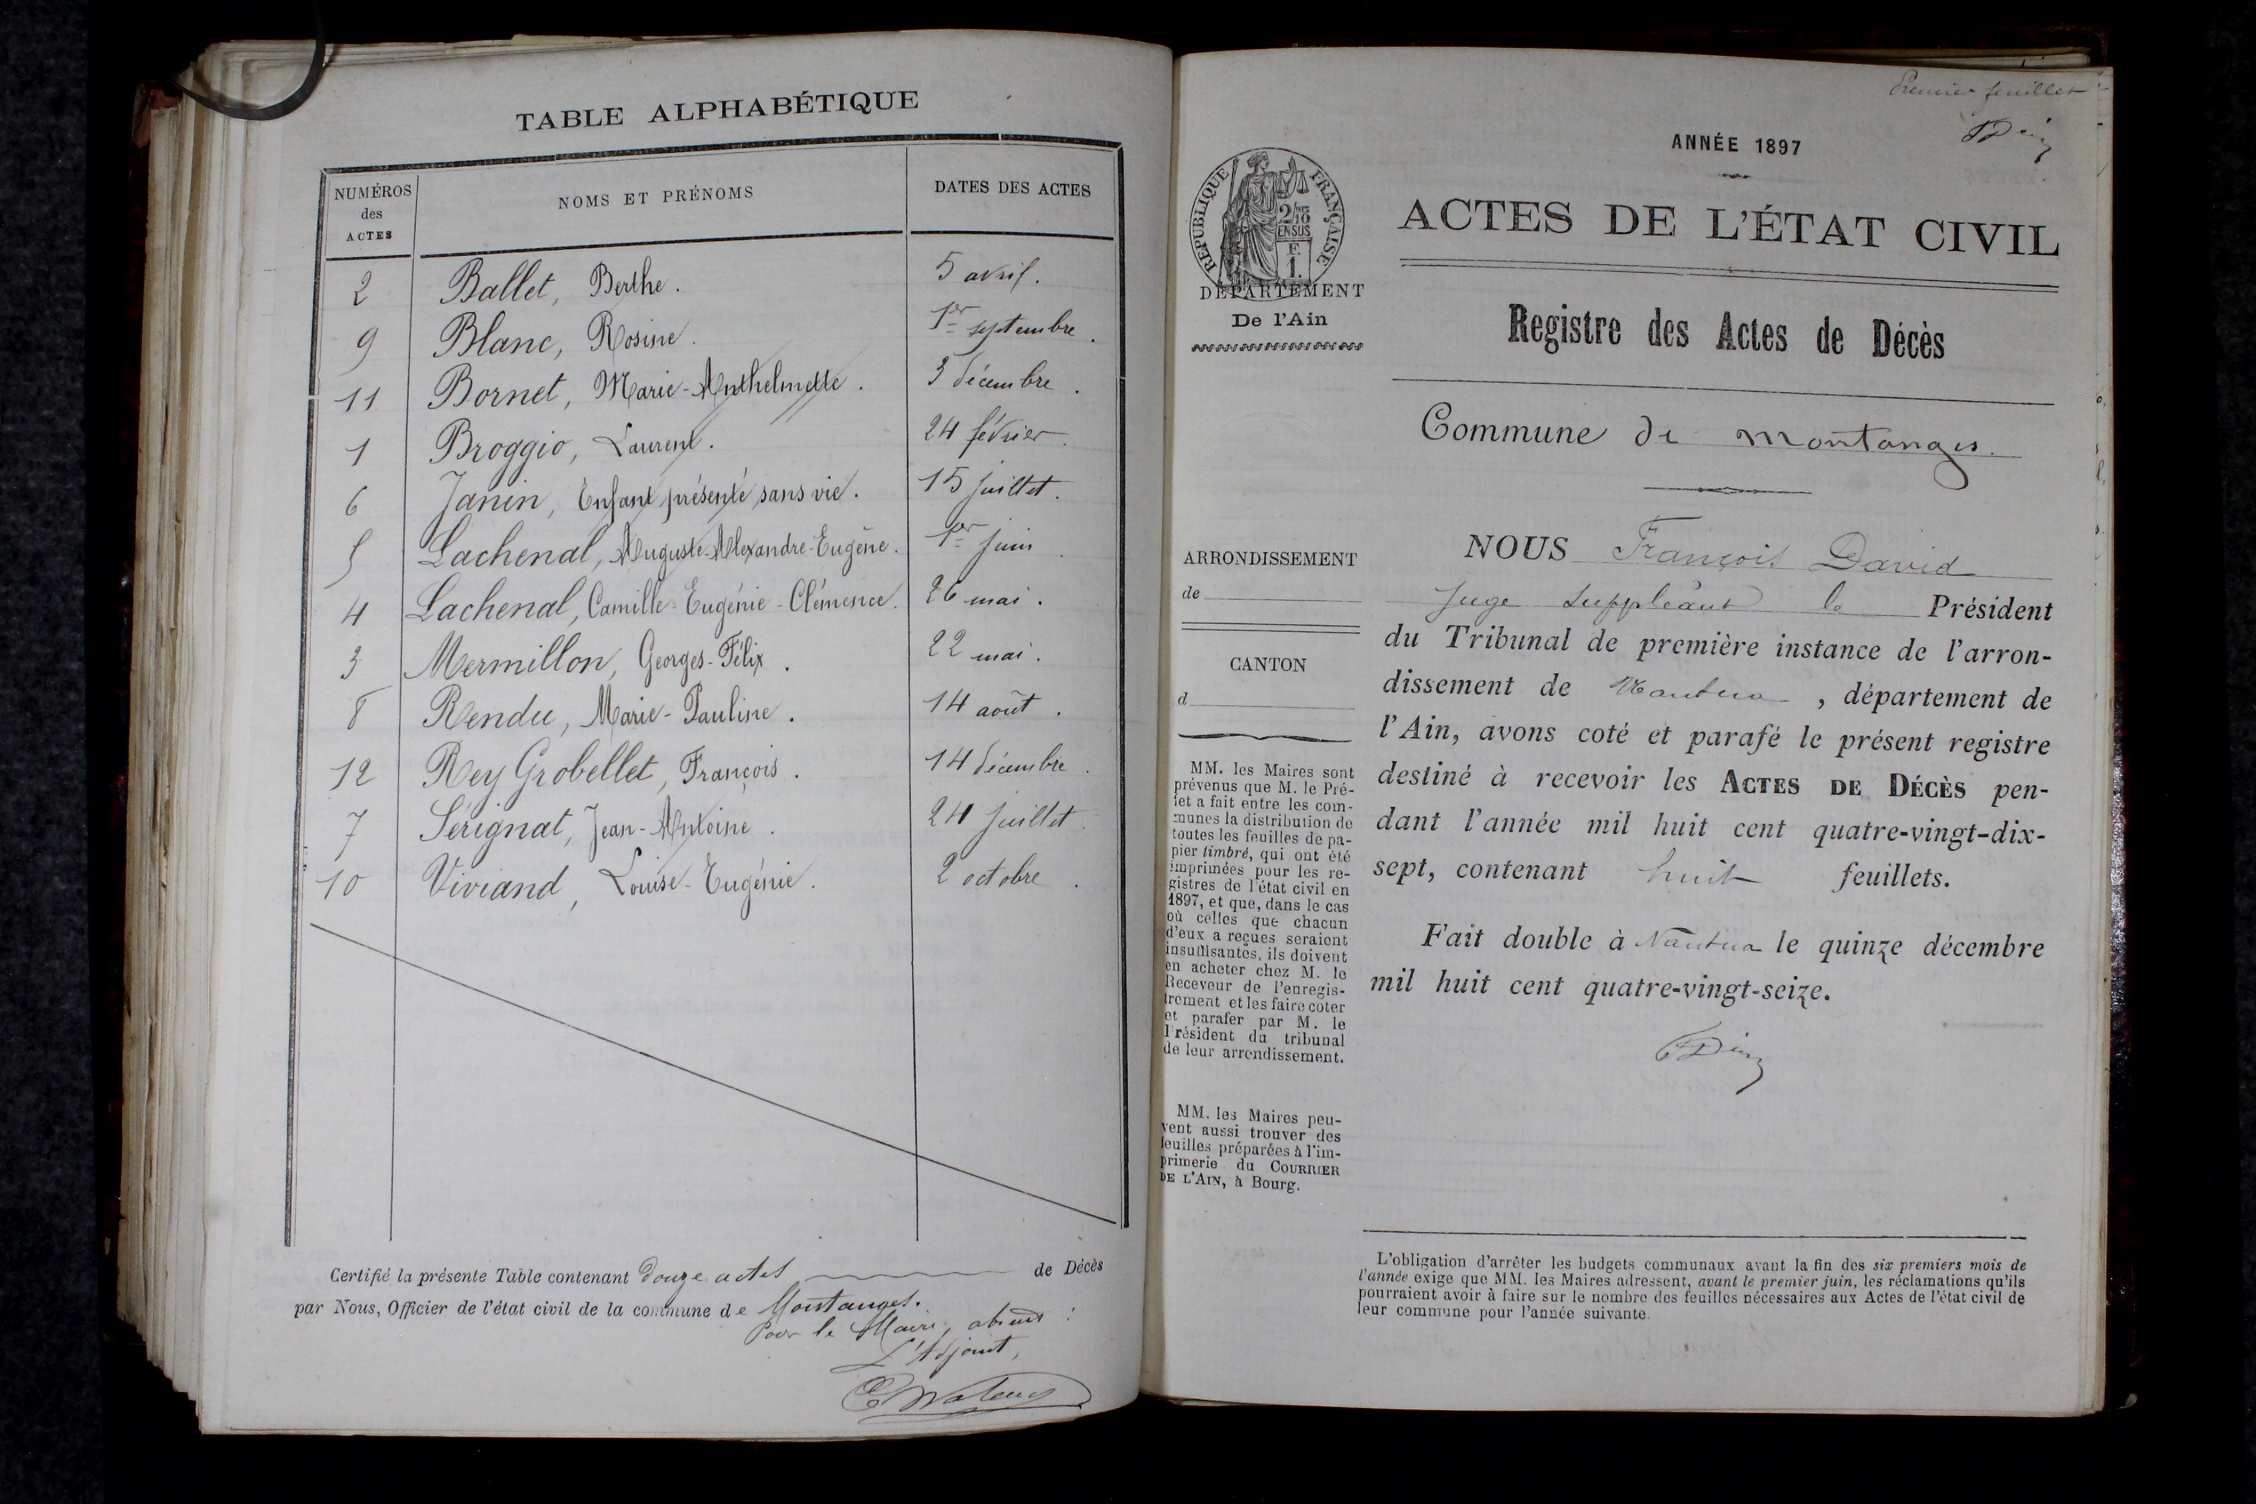 TABLE ALPHABÉTIQUE
NUMÉROS des ACTES
NOMS ET PRÉNOMS
DATES DES ACTES
2 Ballet, Berthe. 5 avril.
9 Blanc, Rosine. 1er septembre.
11 Bornet, Marie-Anthelmette. 3 décembre.
1 Broggio, Laurent. 24 février.
6 Janin, Enfant présenté sans vie. 15 juillet.
5 Lachenal, Auguste-Alexandre-Eugène. 1er juin
4 Lachenal, Camille-Eugénie-Clémence. 26 mai.
3 Mermillon, Georges-Félix. 22 mai.
8 Rendu, Marie-Pauline. 14 août.
12 Rey Grobellet, François. 14 décembre.
7 Sérignat, Jean-Antoine. 24 juillet.
10 Viviand, Louise-Eugénie. 2 octobre.
Certifié la présente Table contenant douze actes de Décès
par Nous, Officier de l'état civil de la commune de Montanges.
Pour le Maire, absent :
L'Adjoint,
Premier feuillet
ANNÉE 1897
RÉPUBLIQUE FRANÇAISE
2/10
EN SUS
F
1.
ACTES DE L'ÉTAT CIVIL
DÉPARTEMENT
De l'Ain
Registre des Actes de Décès
Commune de Montanges.
ARRONDISSEMENT
de
CANTON
d
NOUS François David
Juge Suppléant le Président
du Tribunal de première instance de l'arron-
dissement de Nantua, département de
l'Ain, avons coté et parafé le présent registre
destiné à recevoir les ACTES DE DÉCÈS pen-
dant l'année mil huit cent quatre-vingt-dix-
sept, contenant huit feuillets.
Fait double à Nantua le quinze décembre
mil huit cent quatre-vingt-seize.
MM. les Maires sont
prévenus que M. le Pré-
fet a fait entre les com-
munes la distribution de
toutes les feuilles de pa-
pier timbré, qui ont été
imprimées pour les re-
gistres de l'état civil en
1897, et que, dans le cas
où celles que chacun
d'eux a reçues seraient
insuffisantes, ils doivent
en acheter chez M. le
Receveur de l'enregis-
trement et les faire coter
et parafer par M. le
Président du tribunal
de leur arrondissement.
MM. les Maires peu-
vent aussi trouver des
feuilles préparées à l'im-
primerie du COURRIER
DE L'AIN, à Bourg.
L'obligation d'arrêter les budgets communaux avant la fin des six premiers mois de
l'année exige que MM. les Maires adressent, avant le premier juin, les réclamations qu'ils
pourraient avoir à faire sur le nombre des feuilles nécessaires aux Actes de l'état civil de
leur commune pour l'année suivante.